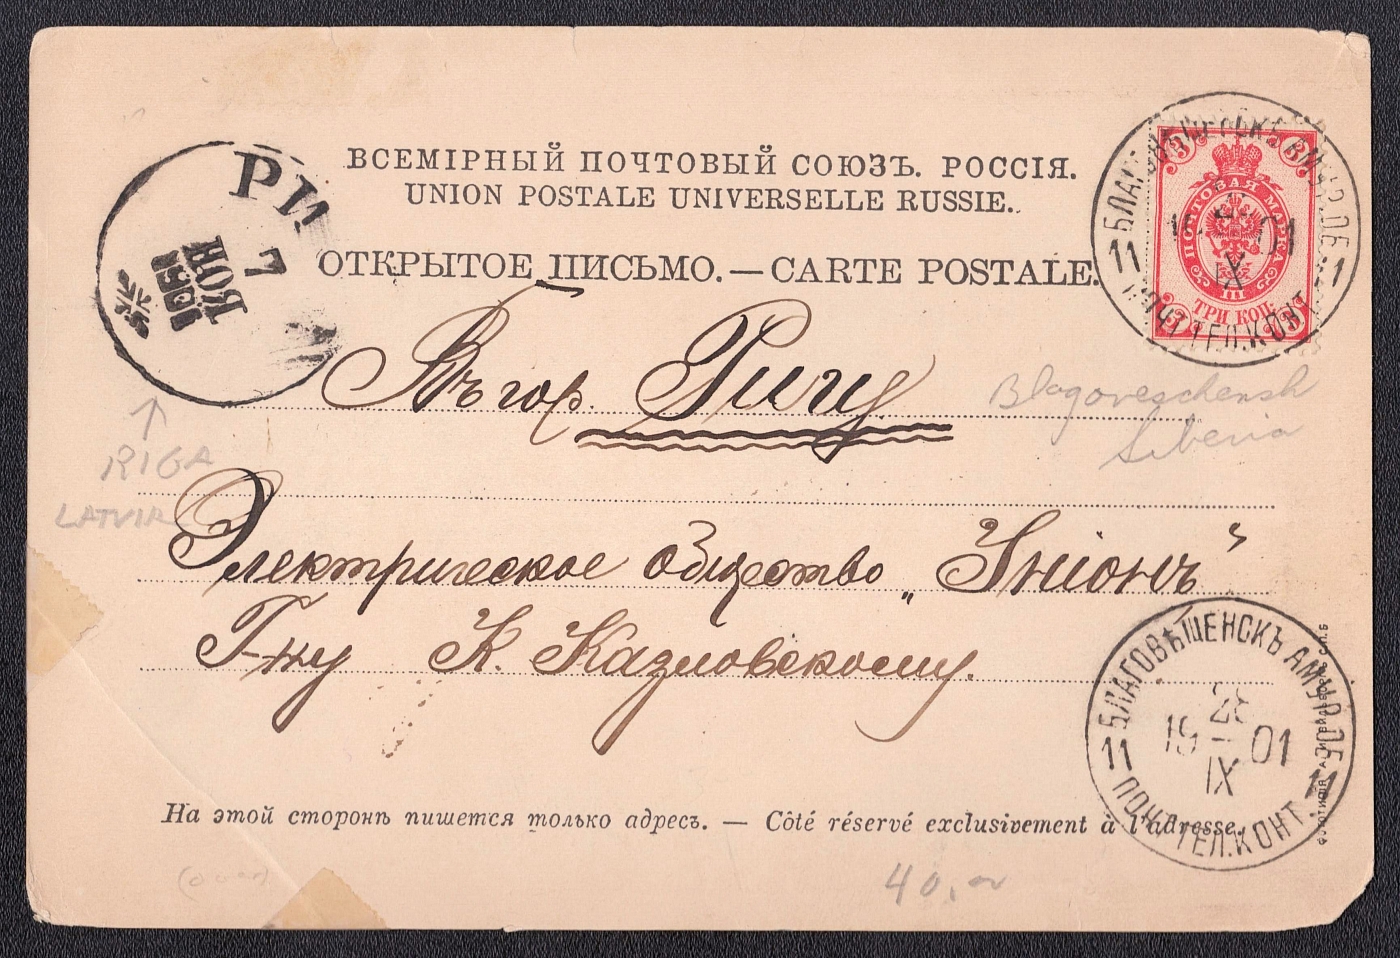 ВСЕМІРНЫЙ ПОЧТОВЫЙ СОЮЗЪ. РОССІЯ.
UNION POSTALE UNIVERSELLE RUSSIE.
ОТКРЫТОЕ ПИСЬМО. — CARTE POSTALE.
РИ
7
НОЯ
1901
ПОЧТОВАЯ МАРКА
ТРИ КОП.
БЛАГОВѢЩЕНСКЪ АМУР.ОБ.
19 IX 01
11 11
ПОЧТ.ТЕЛ.КОНТ.
Въ гор. Ригу
Blagoveschensk
Siberia
RIGA
LATVIA
Электрическое общество „Уніонъ“
Г-ну К. Казловскому.
БЛАГОВѢЩЕНСКЪ АМУР.ОБ.
28
19 — 01
IX
11 11
ПОЧТ.ТЕЛ.КОНТ.
На этой сторонѣ пишется только адресъ. — Côté réservé exclusivement à l'adresse.
(over)
40.